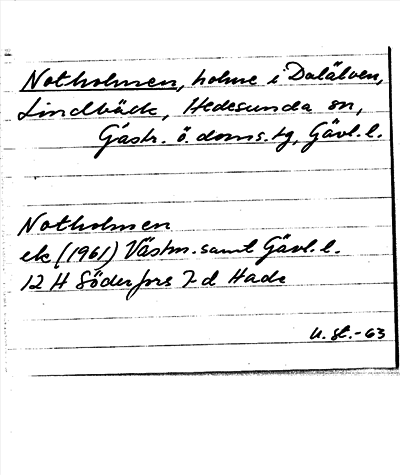 Notholmen, holme i Dalälven,
Lindbäck, Hedesunda sn,
Gästr. ö. doms.tg, Gävl.l.
Notholmen
ek (1961) Västm. samt Gävl.l.
12 H Söderfors 7-d Hade
U.st.-63